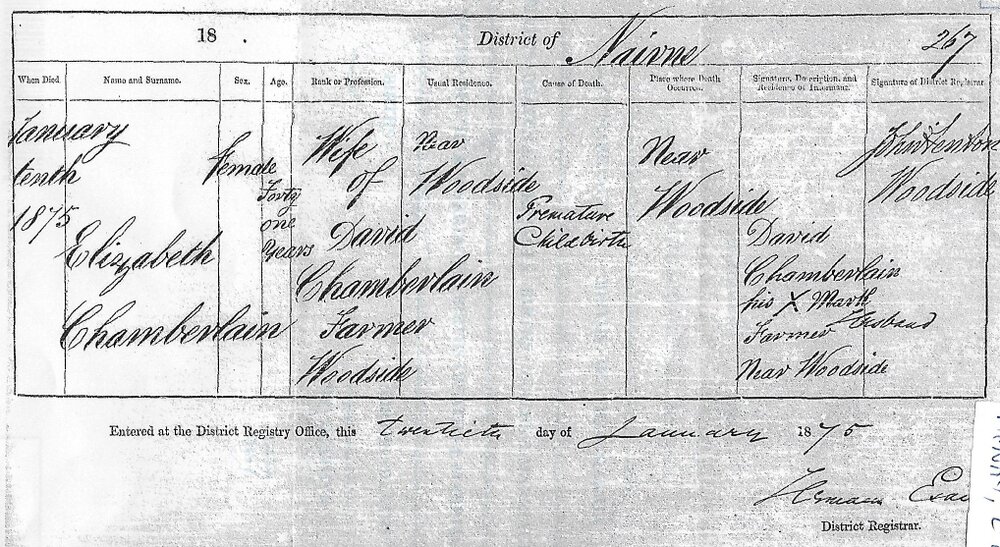 18 . District of Nairne 267
When Died. Name and Surname. Sex. Age. Rank or Profession. Usual Residence. Cause of Death. Place where Death Occurred. Signature, Description, and Residence of Informant. Signature of District Registrar.
January
tenth
1875
Elizabeth
Chamberlain
Female
Forty
one
Years
Wife
of
David
Chamberlain
Farmer
Woodside
Near
Woodside
Premature
Childbirth
Near
Woodside
David
Chamberlain
his X Mark
Husband
Farmer
Near Woodside
John Fenton
Woodside
Entered at the District Registry Office, this twentieth day of January 1875
District Registrar.